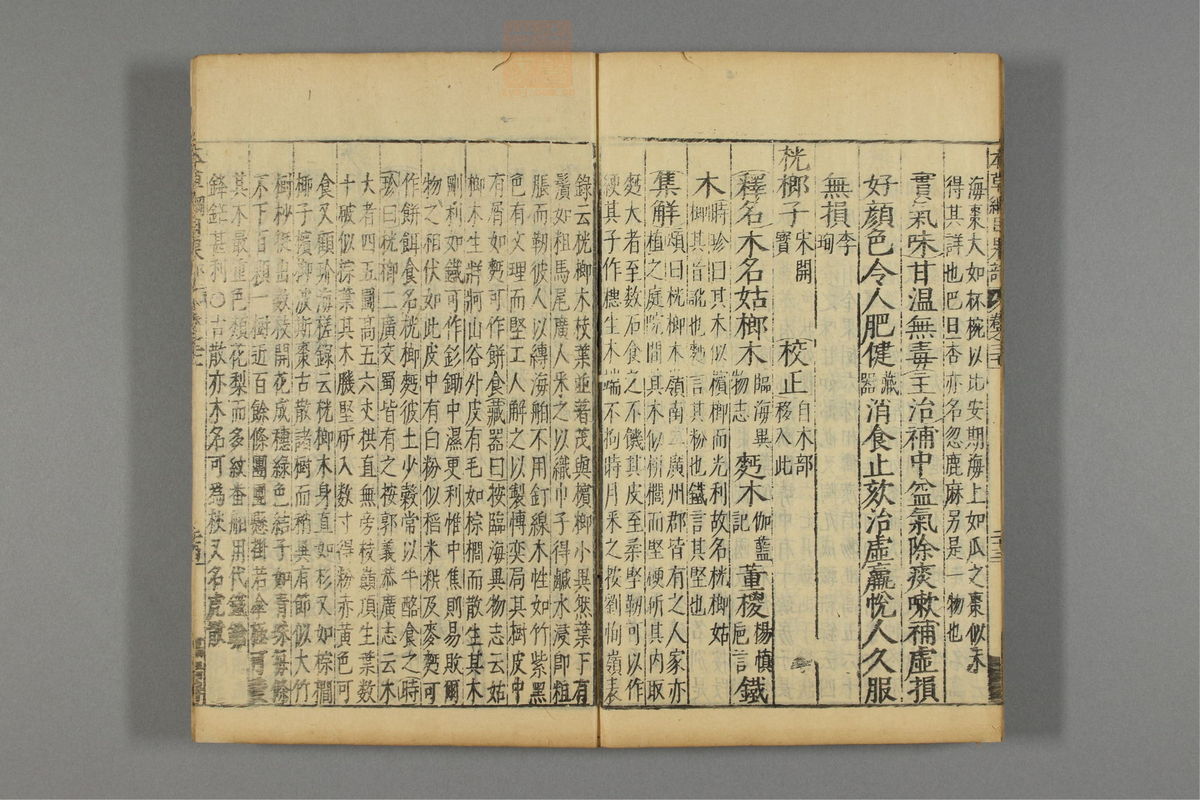 海棗大如杯椀以比安期海上如瓜之棗似未
得其詳也巴旦杏亦名忽鹿麻另是一物也
實氣味甘溫無毒主治補中益氣除痰嗽補虛損
好顏色令人肥健藏器消食止欬治虛羸悅人久服
無損李珣
桄榔子宋開寶 校正自木部移入此
釋名木名姑榔木臨海異物志麪木伽藍記董㯶楊慎巵言鐵
木時珍曰其木似檳榔而光利故名桄榔姑
榔其音訛也麪言其粉也鐵言其堅也
集解頌曰桄榔木嶺南二廣州郡皆有之人家亦
植之庭院間其木似栟櫚而堅硬斫其內取
麪大者至數石食之不饑其皮至柔堅韌可以作
綆其子作穗生木端不拘時月采之按劉恂嶺表
錄云桄榔木枝葉並蕃茂與檳榔小異然葉下有
鬚如粗馬尾廣人采之以織巾子得鹹水浸即粗
脹而韌彼人以縛海舶不用釘線木性如竹紫黑
色有文理而堅工人解之以製博奕局其樹皮中
有屑如麪可作餅食藏器曰按臨海異物志云姑
榔木生牂牁山谷外皮有毛如棕櫚而散生其木
剛利如鐵可作釤鋤中濕更利惟中焦則易敗爾
物之相伏如此皮中有白粉似稻米粉及麥麪可
作餅餌食名桄榔麪彼土少穀常以牛酪食之時
珍曰桄榔二廣交蜀皆有之按郭義恭廣志云木
大者四五圍高五六丈拱直無旁枝巔頂生葉數
十破似棕葉其木肌堅斫入數寸得粉赤黃色可
食又顧玠海槎錄云桄榔木身直如杉又如棕櫚
椰子檳榔波斯棗古散諸樹而稍異有節似大竹
樹杪挺出數枝開花成穗綠色結子如青珠每條
不下百顆一樹近百餘條團團懸掛若傘極可
其木最重色類花梨而多紋番舶用代鐵
鋒鋩甚利○古散亦木名可為杖又名